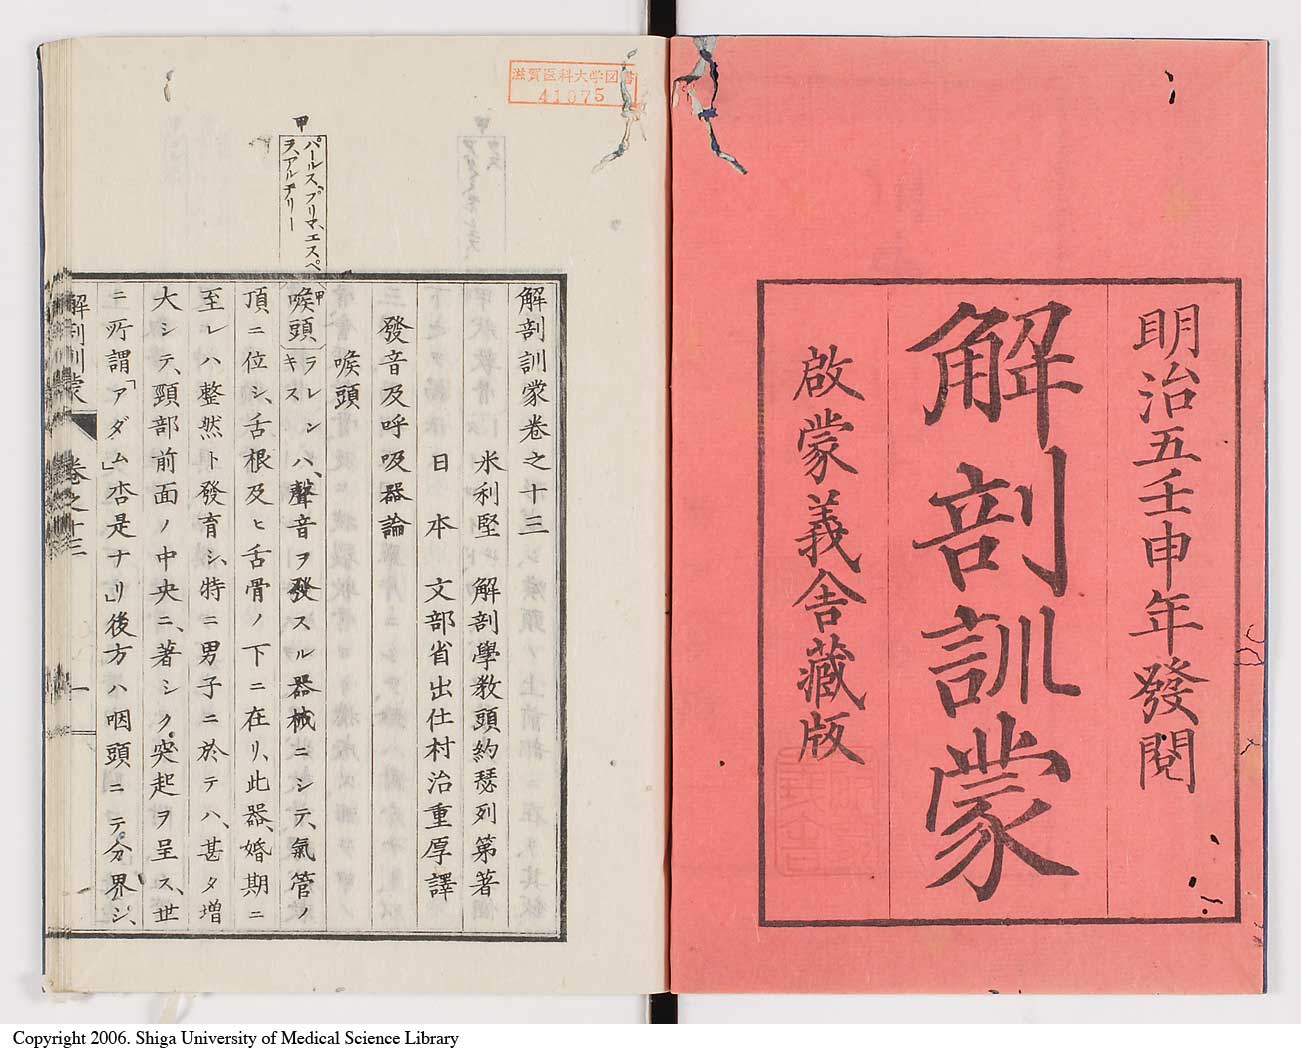 明治五壬申年發閲
解剖訓蒙
啟蒙義舎藏版
滋賀医科大学図書
41075
甲
パールス、プリマ、エスペ、
ヲ、アルテリー
解剖訓蒙卷之十三
米利堅 解剖學教頭約瑟列第著
日本 文部省出仕村治重厚譯
發音及呼吸器論
喉頭
甲
喉頭 ラレンキス ハ、聲音ヲ發スル器械ニシテ、氣管ノ
頂ニ位シ、舌根及ヒ舌骨ノ下ニ在リ、此器、婚期ニ
至レハ整然ト發育シ、特ニ男子ニ於テハ、甚タ増
大シテ、頸部前面ノ中央ニ、著シク突起ヲ呈ス、世
ニ所謂「アダム」杏是ナリ」後方ハ咽頭ニテ分界シ、
解剖訓蒙 卷之十三 一
Copyright 2006. Shiga University of Medical Science Library